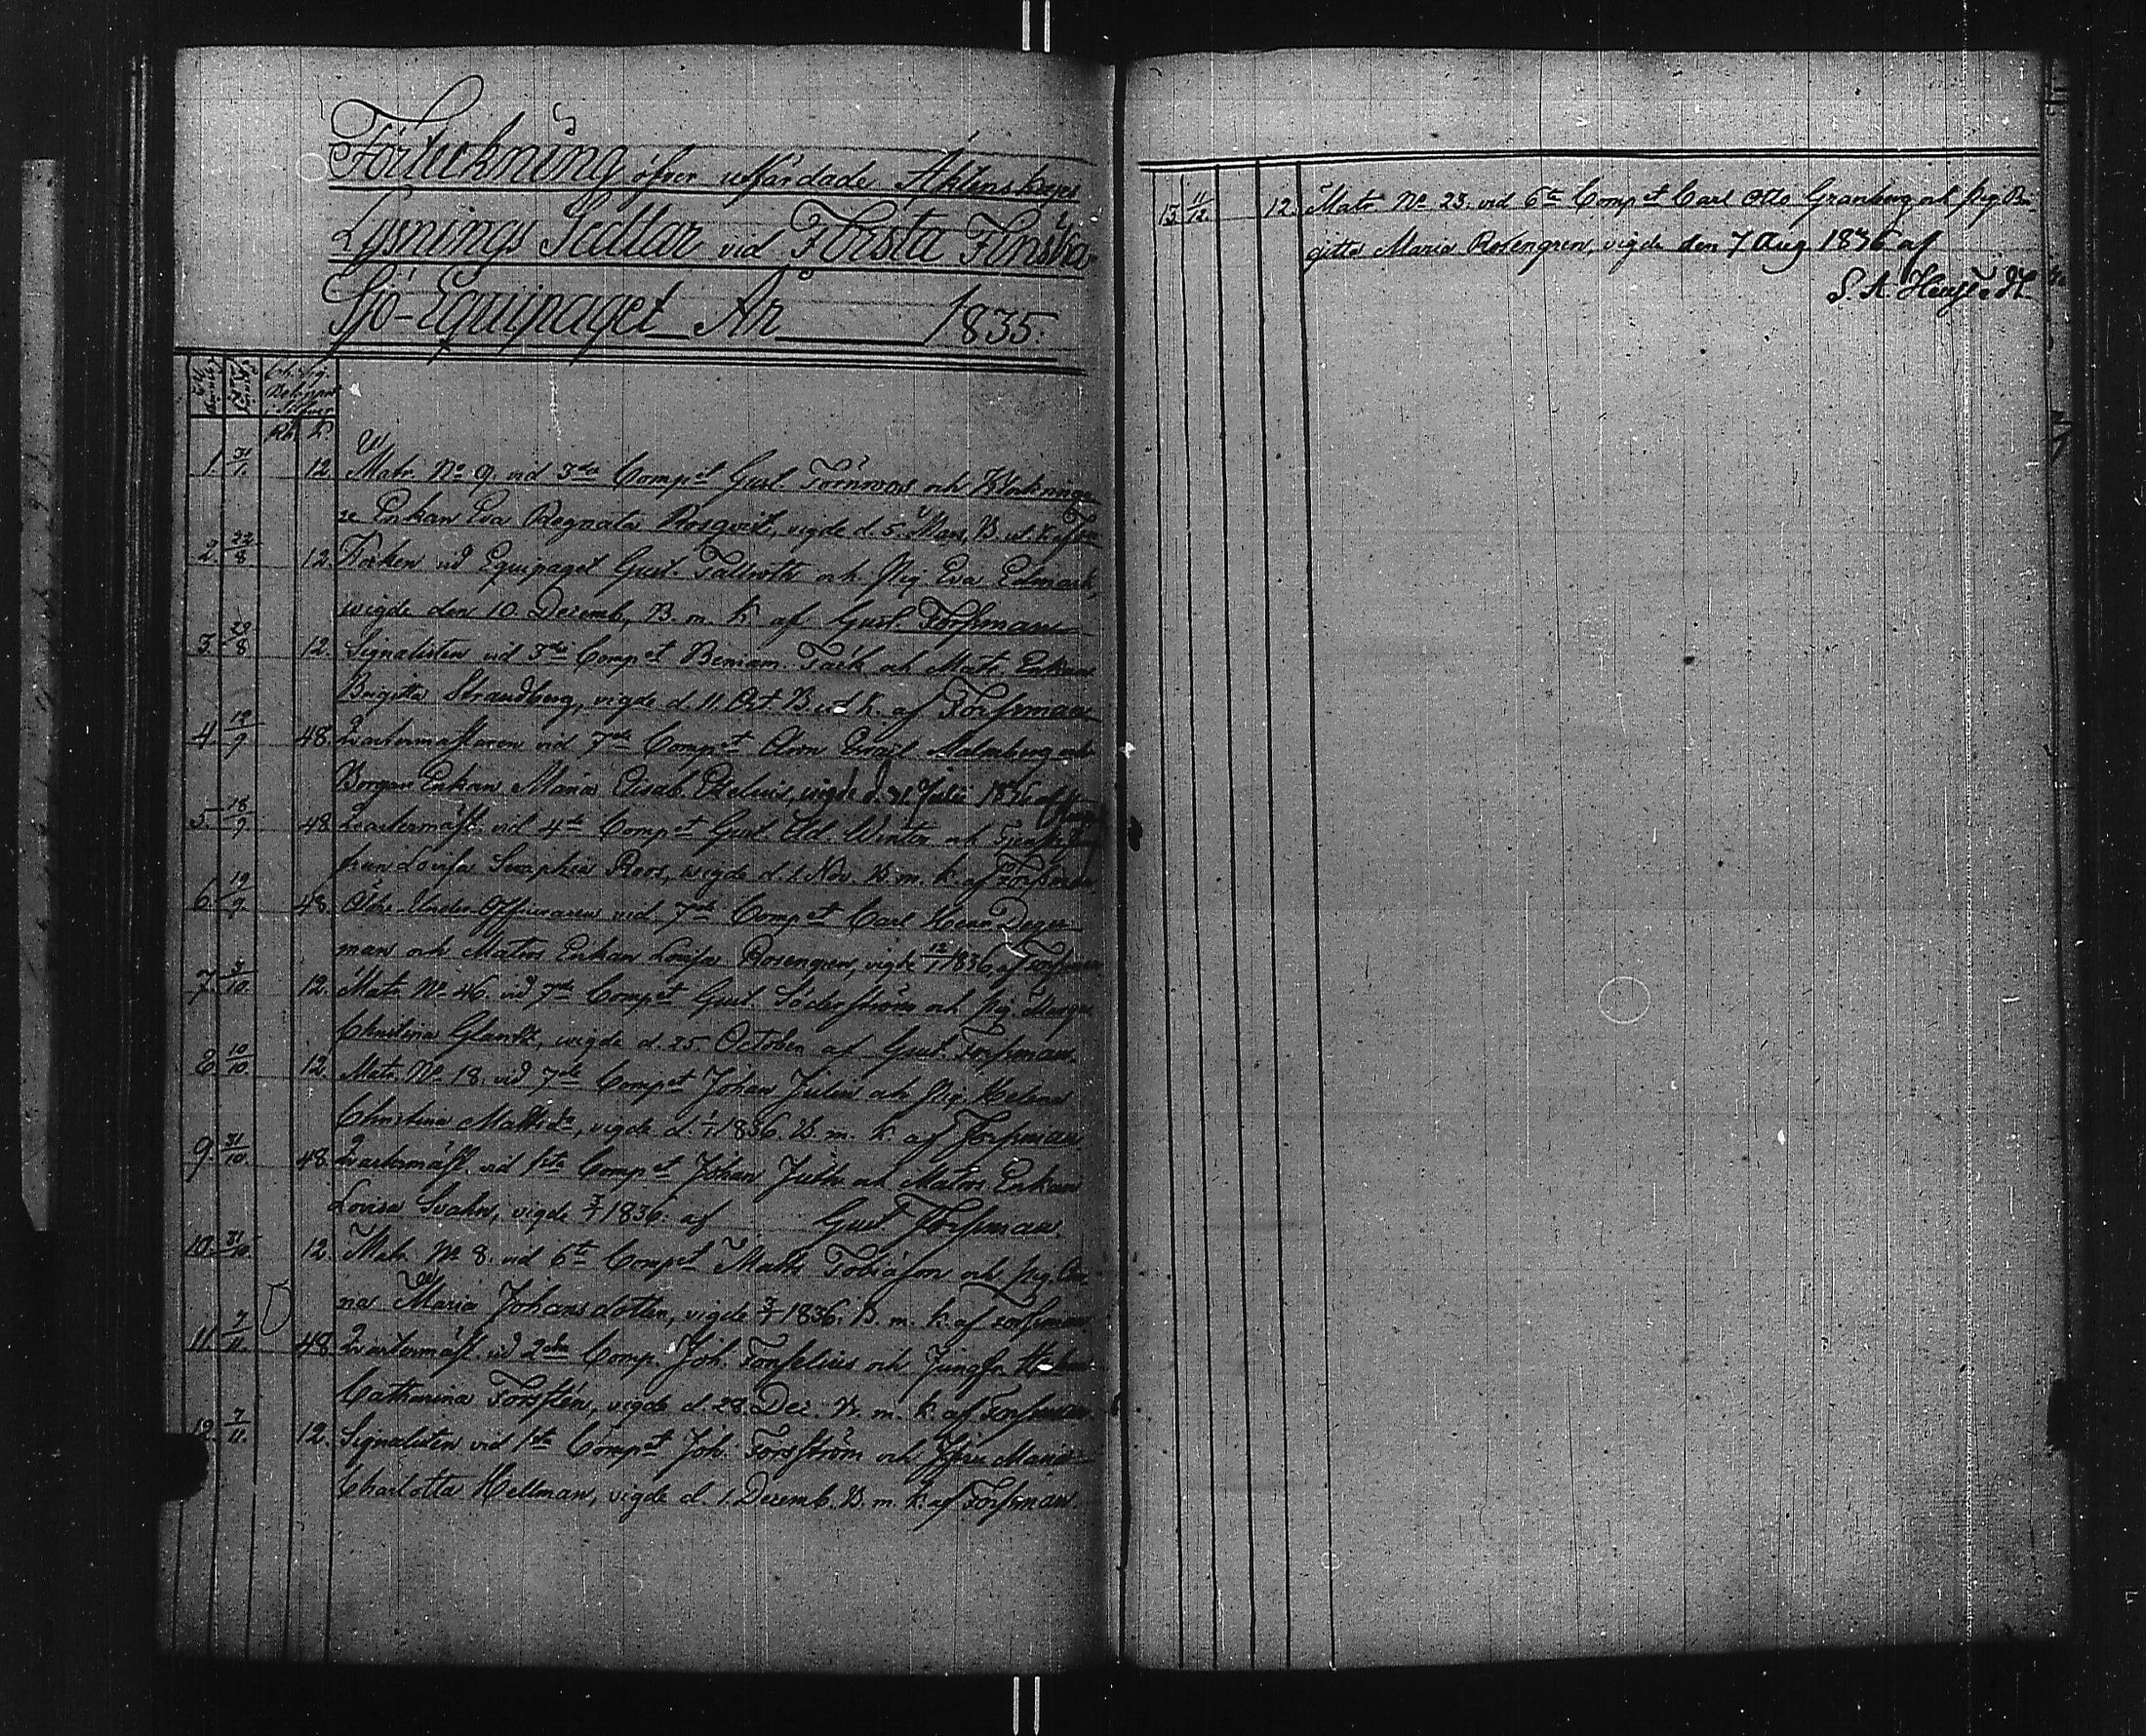 Förteckning öfver utfärdade Äktenskaps
Lysnings Sedlar vid Första Finska
Sjö-Equipaget År 1835.
Rb. k.
1. 31/1. 12 Matr. No 9. vid 3die Compet Gust. Törnroos och
Enkan Eva Regnata Rosqvist, vigde d. 5. Mars, B. u. k. af
2. 22/8 12. Kocken vid Equipaget Gust. Tallroth och Pig. Eva Edmark,
wigde den 10. Decemb, B. m. k. af Gust Forssman
3. 29/8 12. Signalisten vid 3die Compet Beniam. Täck och Matr. Enkan
Brigitta Strandberg, vigde d. 11. Oct. B. u. k. af Forssman
4. 12/9 48. Qvartermästaren vid 7de Compet Malmberg och
Borgare Enkan Maria Elisab. vigde d. 31 Julii 1836 af
5. 18/9 48 Qvartermäst. vid 4de Compet Gust. Ad. Winter och
frun Lovisa Seraphia Roos, wigde d. 1. Nov. B. m. k. af Forssman
6. 19/9. 48. Under-Officeraren vid 7de Compet Carl Henr. Deger-
man och Matros Enkan Lovisa Rosengren, vigde 12/1 1836, af Forssman
7. 3/10. 12. Matr. No 46. vid 7de Compet Gust Söderström och pig.
Christina Glantz, wigde d. 25. October af Gust. Forssman.
8. 10/10. 12 Matr. No 18. vid 7de Compet Johan Julin och Pig. Helena
Christina Mattsdr, vigde d. 1/1 1836. B. m. k. af Forssman
9. 31/10. 48. Qvartermäst. vid 1sta Compet Johan Juth och Matros Enkan
Lovisa Svahn, vigde 3/1 1836. af Gust Forssman.
10. 31/10. 12. Matr. No 8. vid 6te Compet Matts Tobiason och pig. Ca-
na Maria Johansdotter, vigde 3/1 1836. B. m. k. af Forssman
11. 7/11. 48 Qvartermäst. vid 2dra Comp. Joh. Fonselius och Jungfr.
Catharina Forstén, vigde d. 28 Dec. B. m. k. af Forssman.
12. 7/11. 12. Signalisten vid 1sta Compet Joh. Forsström och Jfrn Maria
Charlotta Hellman, vigde d. 1. Decemb. B. m. k. af Forssman.
13. 11/12. 12. Matr. No 23. vid 6te Compet Carl Otto Granberg och pig. Bri-
gitta Maria Rosengren, vigde den 7 Aug 1836 af